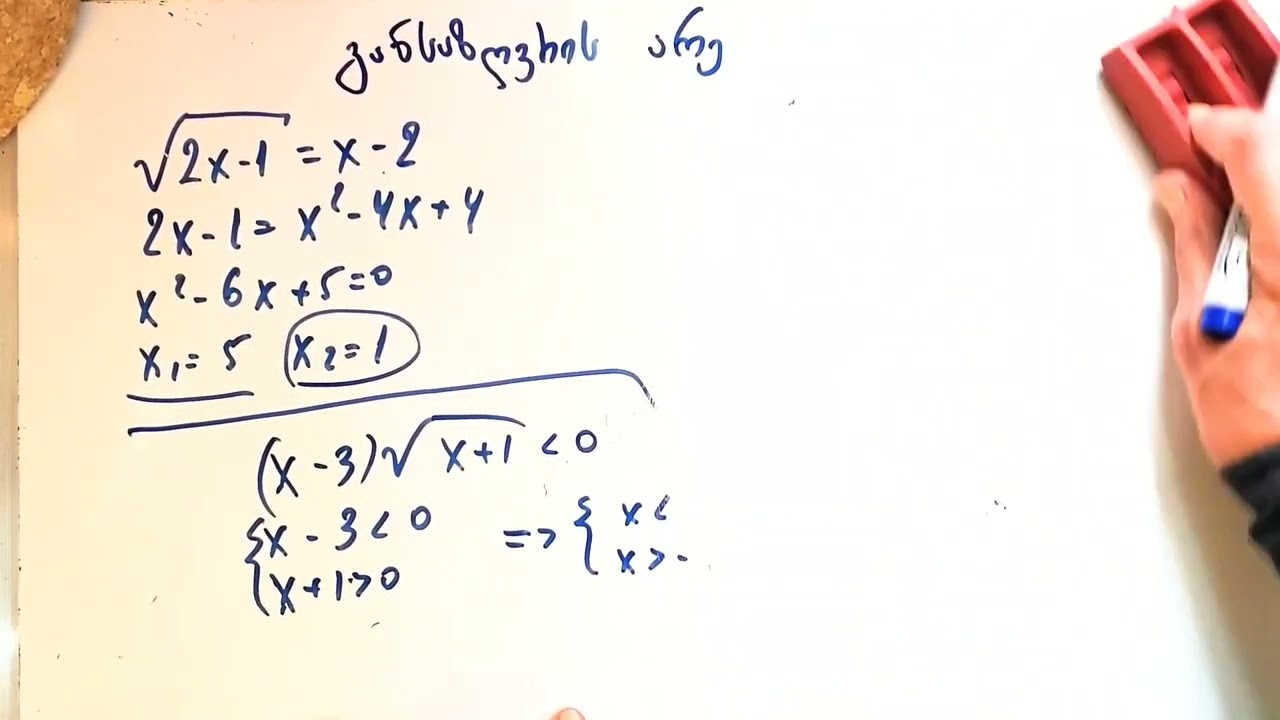 განსაზღვრის არე
√(2x-1) = x-2
2x-1 = x²-4x+4
x²-6x+5=0
x₁=5 x₂=1
(x-3)√(x+1) < 0
{x-3<0 => {x<
{x+1>0 {x>-